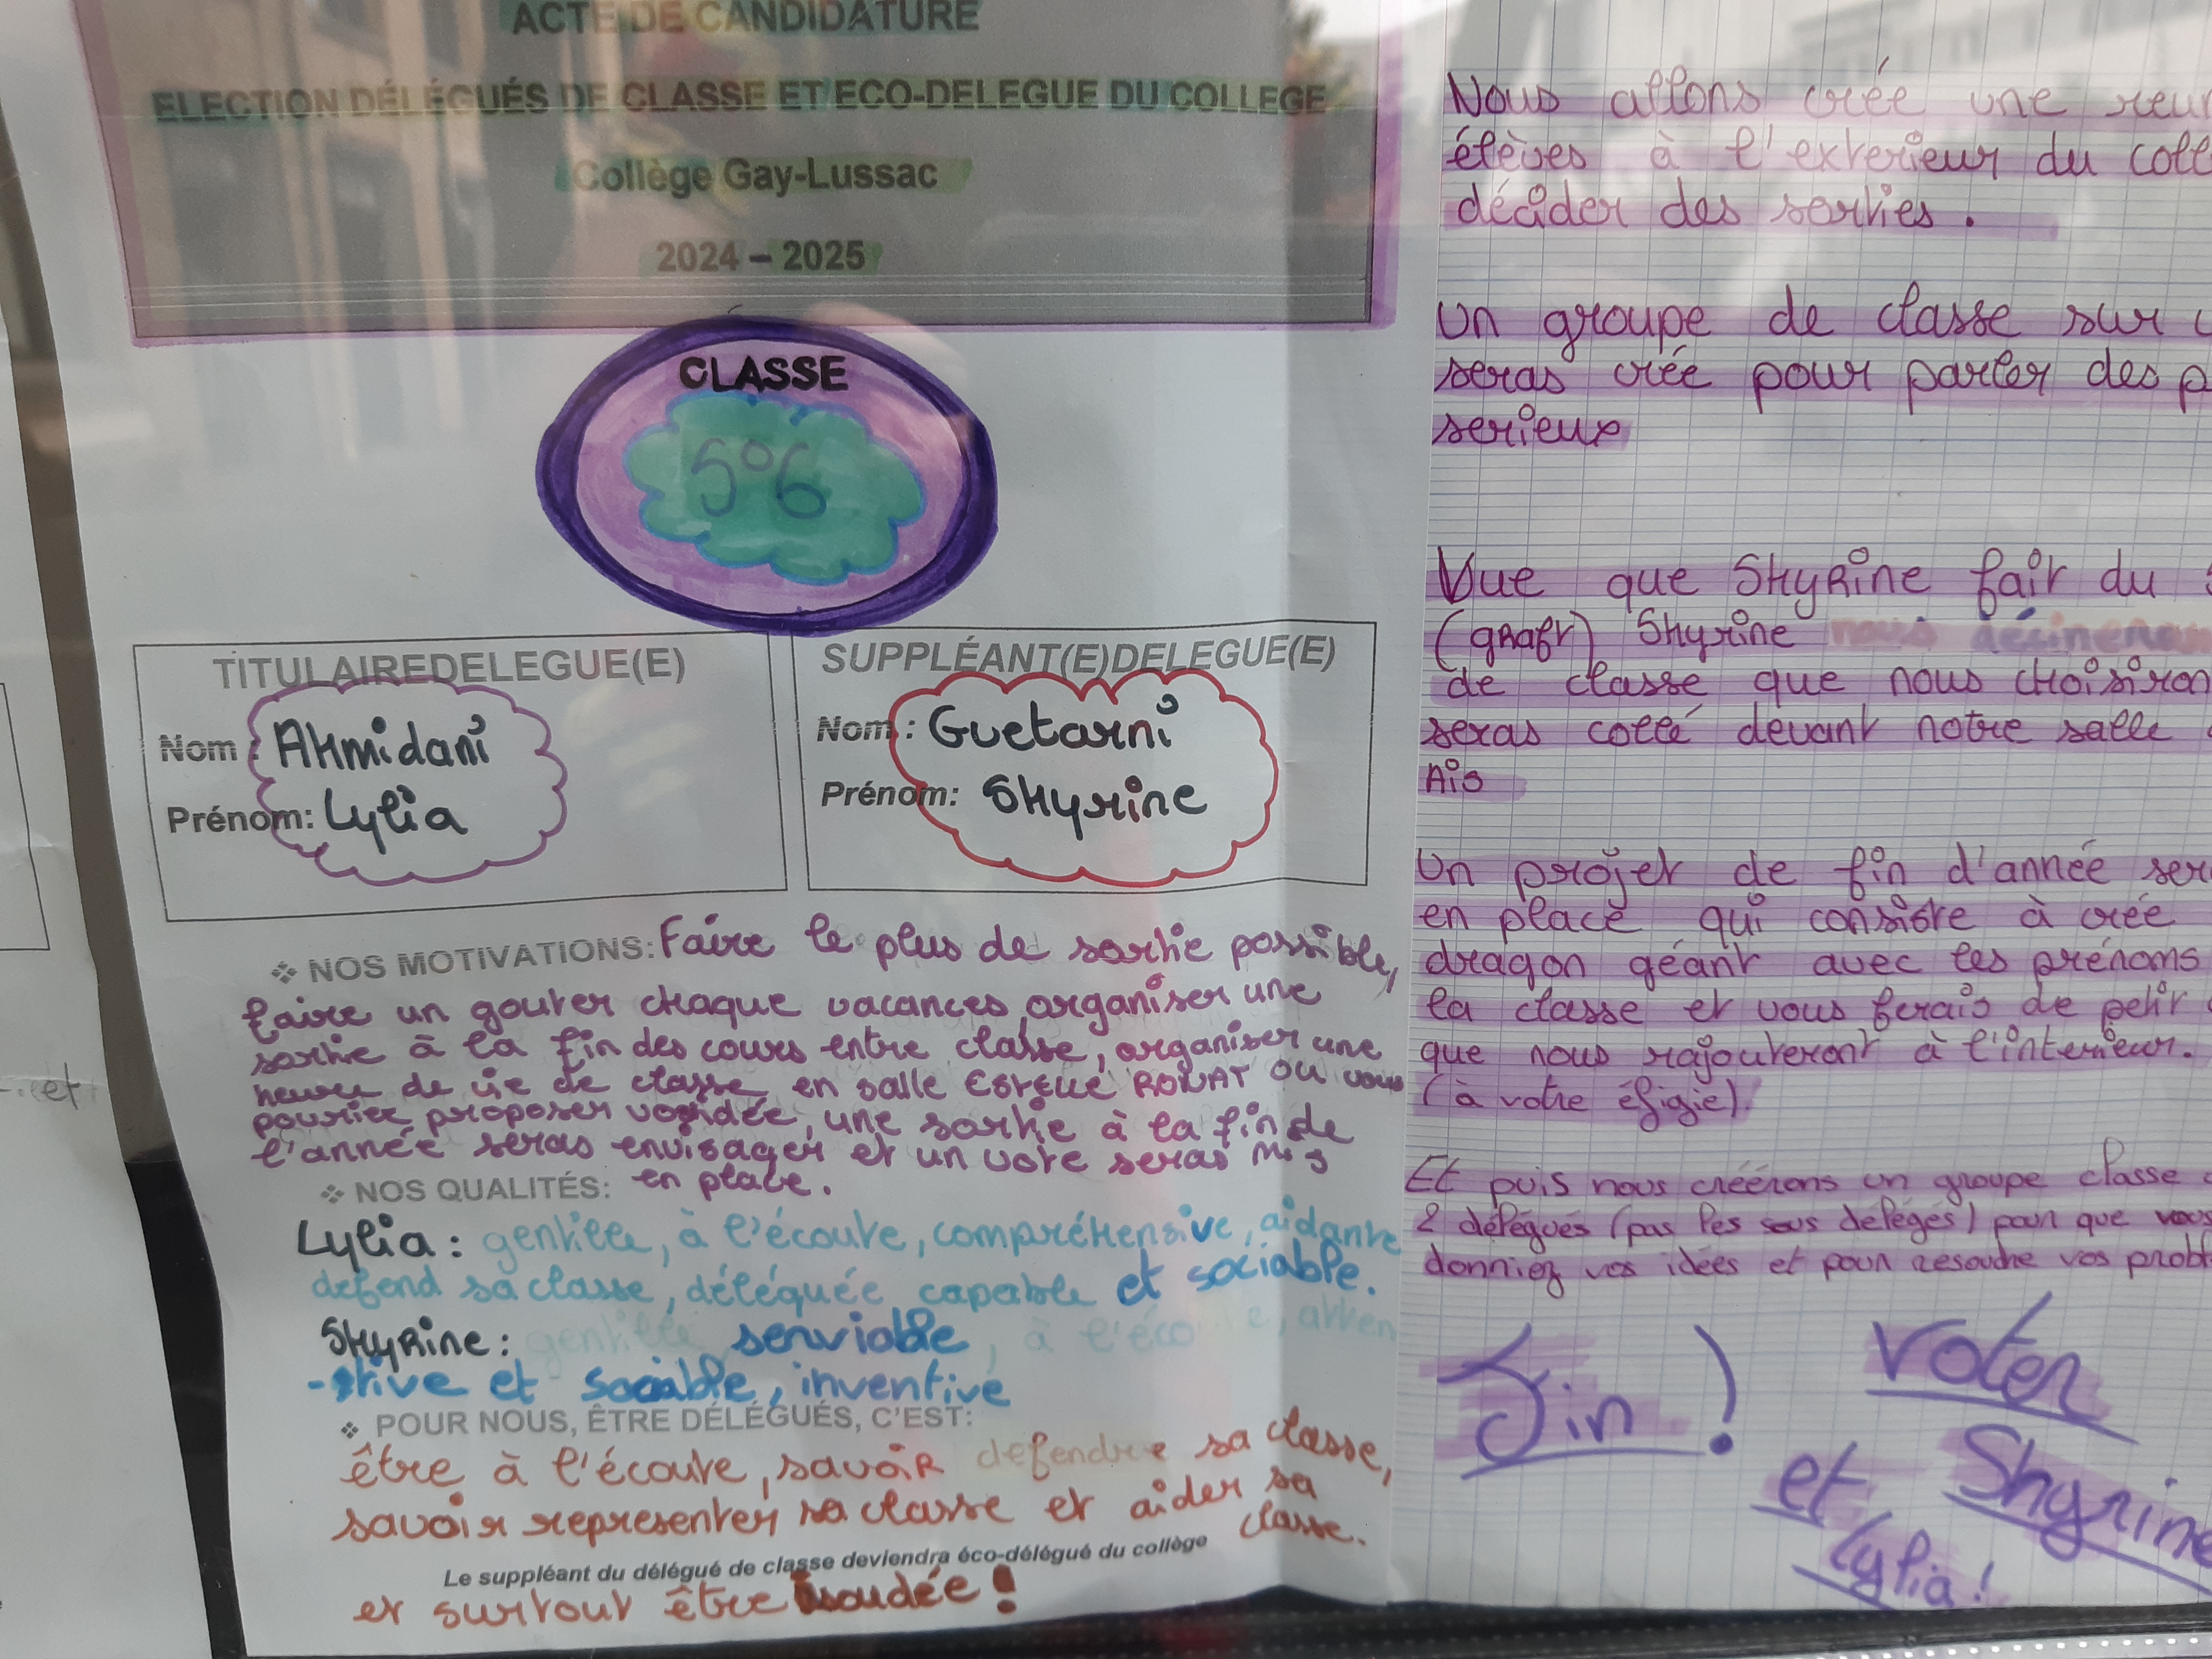 ACTE DE CANDIDATURE
ELECTION DÉLÉGUÉS DE CLASSE ET ECO-DELEGUE DU COLLEGE
Collège Gay-Lussac
2024 – 2025
CLASSE
5°6
TITULAIREDELEGUE(E)
Nom : AHmidani
Prénom: Lylia
SUPPLÉANT(E)DELEGUE(E)
Nom : Guetarni
Prénom: SHyrine
❖ NOS MOTIVATIONS: Faire le plus de sortie possible,
faire un gouter chaque vacances, organiser une
sortie à la fin des cours entre classe, organiser une
heure de vie de classe en salle ou vous
pouriez proposer vos idée, une sortie à la fin de
l'année seras envisager et un vote seras mis
en place.
❖ NOS QUALITÉS:
Lylia : gentille, à l'écoute, compréhensive, aidante
defend sa classe, déléquée capable et sociable.
SHyrine : gentille serviable, à l'éco e, atten
-tive et sociable, inventive
❖ POUR NOUS, ÊTRE DÉLÉGUÉS, C'EST:
être à l'écoute, savoir defendre sa classe,
savoir representer sa classe et aider sa
classe.
Le suppléant du délégué de classe deviendra éco-délégué du collège
et surtout être soudée !
Nous allons crée une reu
élèves à l'exterieur du coll
décider des sorties.
Un groupe de classe sur
seras crée pour parler des p
serieux
Vue que SHyrine fait du
(graff) SHyrine nous désinera
de classe que nous choisiron
seras collé devant notre salle
Ais
Un projet de fin d'année ser
en place qui consiste à crée
dragon géant avec les prénoms
la classe et vous ferais de petit
que nous rajouteront à l'interieur.
(à votre éfigie).
Et puis nous créérons un groupe classe
2 délégués (pas les sous délegés) pour que vous
donniez vos idées et pour resoudre vos probl
Fin !
Voter
Shyrine
et
Lylia !